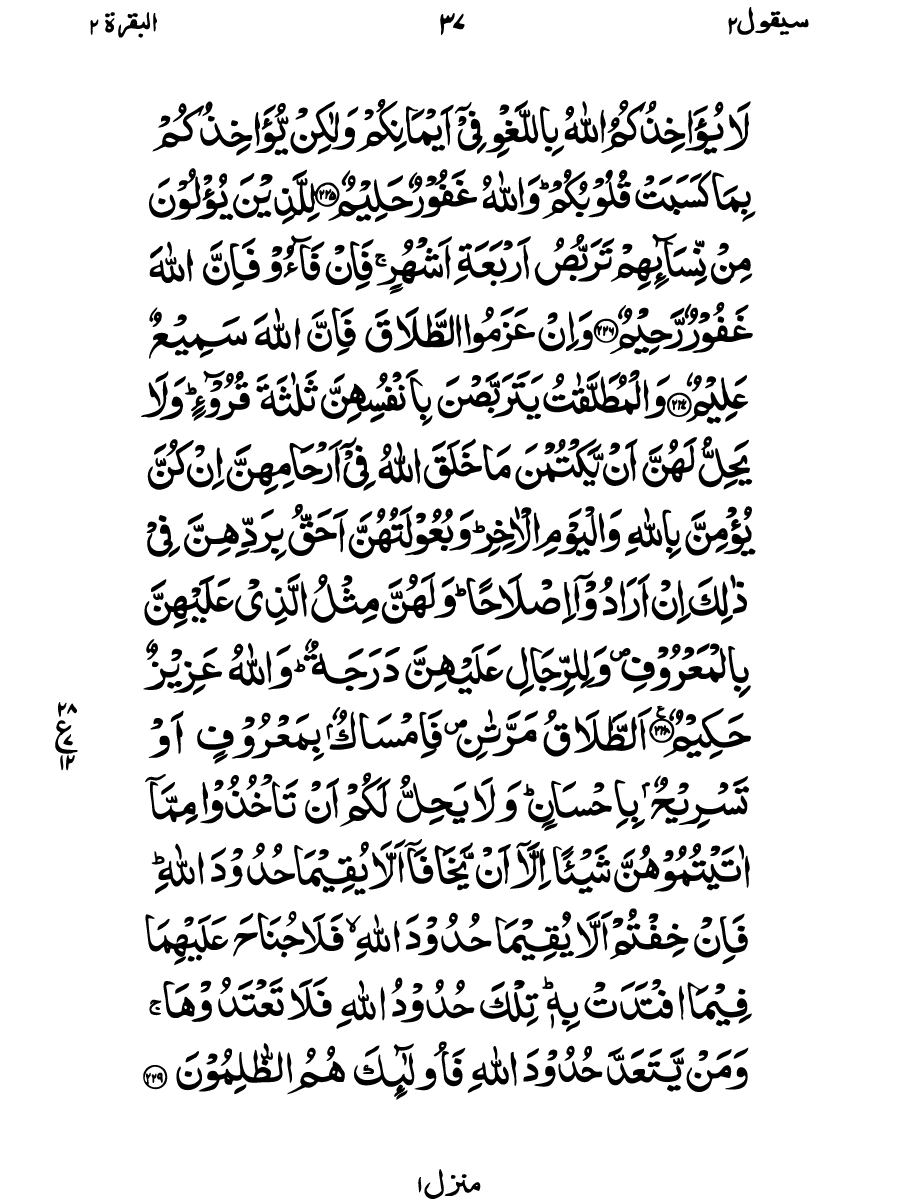 سيقول٢ ٣٧ البقرة ٢
لَا يُؤَاخِذُكُمُ اللّٰهُ بِاللَّغْوِ فِيْۤ اَيْمَانِكُمْ وَلٰكِنْ يُّؤَاخِذُكُمْ
بِمَا كَسَبَتْ قُلُوْبُكُمْ ؕ وَاللّٰهُ غَفُوْرٌ حَلِيْمٌ ﴿٢٢٥﴾ لِلَّذِيْنَ يُؤْلُوْنَ
مِنْ نِّسَآئِهِمْ تَرَبُّصُ اَرْبَعَةِ اَشْهُرٍ ۚ فَاِنْ فَآءُوْ فَاِنَّ اللّٰهَ
غَفُوْرٌ رَّحِيْمٌ ﴿٢٢٦﴾ وَاِنْ عَزَمُوا الطَّلَاقَ فَاِنَّ اللّٰهَ سَمِيْعٌ
عَلِيْمٌ ﴿٢٢٧﴾ وَالْمُطَلَّقٰتُ يَتَرَبَّصْنَ بِاَنْفُسِهِنَّ ثَلٰثَةَ قُرُوْٓءٍ ؕ وَلَا
يَحِلُّ لَهُنَّ اَنْ يَّكْتُمْنَ مَا خَلَقَ اللّٰهُ فِيْۤ اَرْحَامِهِنَّ اِنْ كُنَّ
يُؤْمِنَّ بِاللّٰهِ وَالْيَوْمِ الْاٰخِرِ ؕ وَبُعُوْلَتُهُنَّ اَحَقُّ بِرَدِّهِنَّ فِيْ
ذٰلِكَ اِنْ اَرَادُوْۤا اِصْلَاحًا ؕ وَلَهُنَّ مِثْلُ الَّذِيْ عَلَيْهِنَّ
بِالْمَعْرُوْفِ ۪ وَلِلرِّجَالِ عَلَيْهِنَّ دَرَجَةٌ ؕ وَاللّٰهُ عَزِيْزٌ
حَكِيْمٌ ﴿٢٢٨﴾ اَلطَّلَاقُ مَرَّتٰنِ ۪ فَاِمْسَاكٌۢ بِمَعْرُوْفٍ اَوْ
٢٨
ع
٧
١٢
تَسْرِيْحٌۢ بِاِحْسَانٍ ؕ وَلَا يَحِلُّ لَكُمْ اَنْ تَاْخُذُوْا مِمَّاۤ
اٰتَيْتُمُوْهُنَّ شَيْئًا اِلَّاۤ اَنْ يَّخَافَاۤ اَلَّا يُقِيْمَا حُدُوْدَ اللّٰهِ ؕ
فَاِنْ خِفْتُمْ اَلَّا يُقِيْمَا حُدُوْدَ اللّٰهِ ۙ فَلَا جُنَاحَ عَلَيْهِمَا
فِيْمَا افْتَدَتْ بِهٖ ؕ تِلْكَ حُدُوْدُ اللّٰهِ فَلَا تَعْتَدُوْهَا ۚ
وَمَنْ يَّتَعَدَّ حُدُوْدَ اللّٰهِ فَاُولٰٓئِكَ هُمُ الظّٰلِمُوْنَ ﴿٢٢٩﴾
منزل١